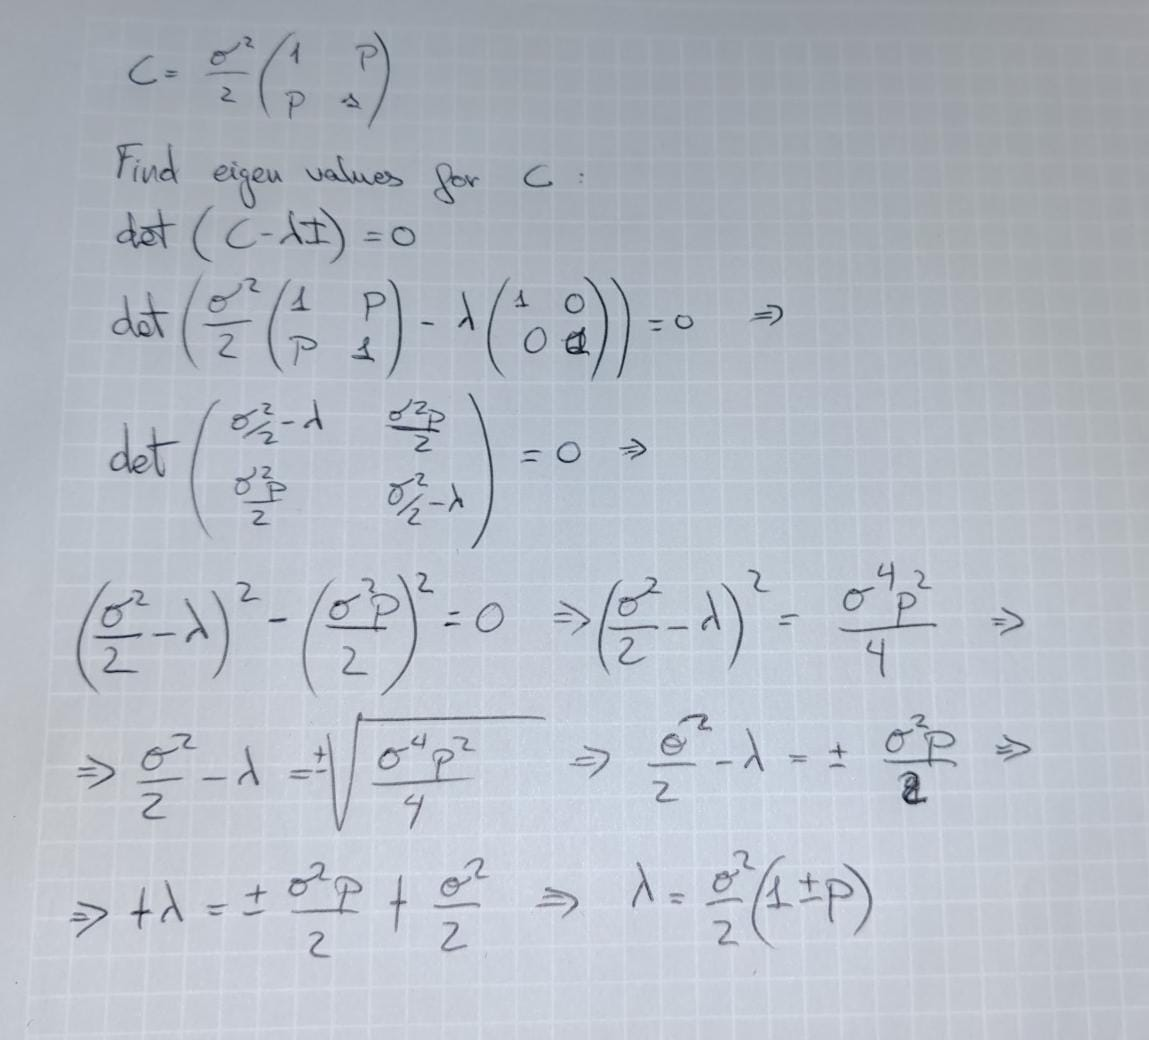 C = σ²/2 (1 p; p 1)
Find eigen values for C :
det (C-λI) = 0
det (σ²/2 (1 p; p 1) - λ (1 0; 0 1)) = 0 ⇒
det (σ²/2-λ σ²p/2; σ²p/2 σ²/2-λ) = 0 ⇒
(σ²/2 - λ)² - (σ²p/2)² = 0 ⇒ (σ²/2 - λ)² = σ⁴p²/4 ⇒
⇒ σ²/2 - λ = ±√(σ⁴p²/4) ⇒ σ²/2 - λ = ± σ²p/2 ⇒
⇒ +λ = ± σ²p/2 + σ²/2 ⇒ λ = σ²/2 (1 ± p)